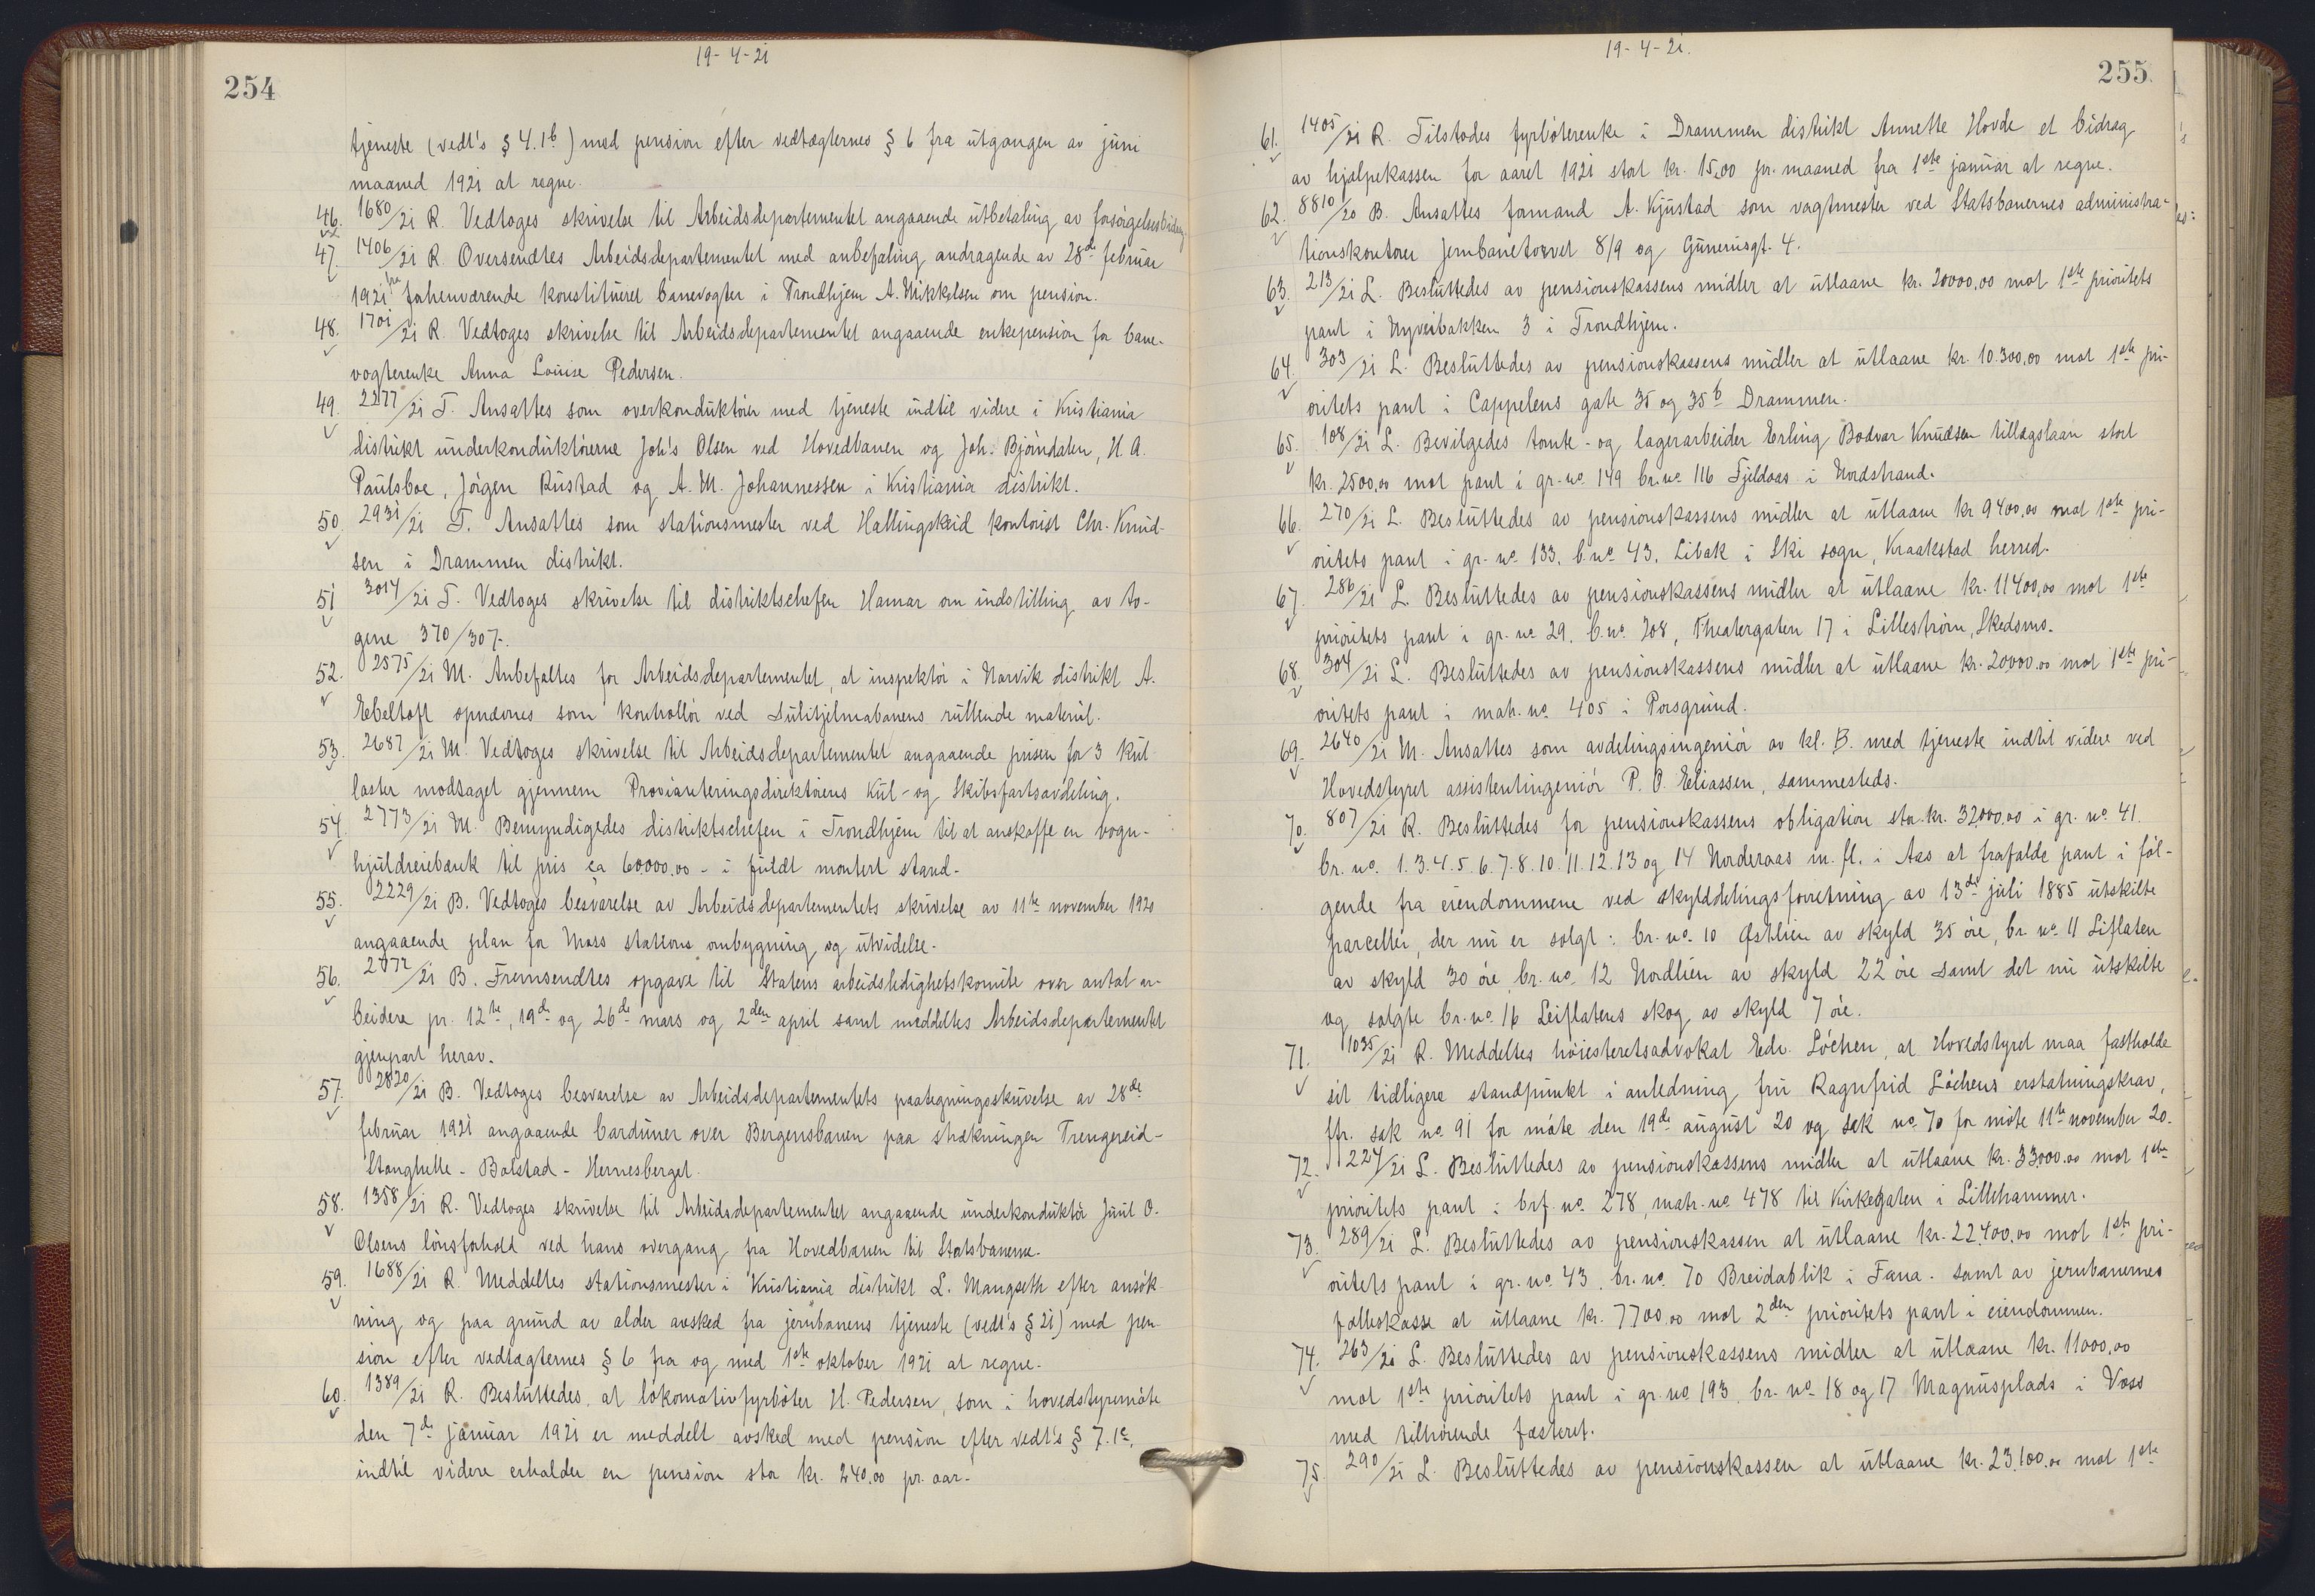 254
19-4-21
tjeneste (vedt's § 4.1b) med pension efter vedtægternes § 6 fra utgangen av juni
maaned 1921 at regne.
46. 1680/21 R. Vedtoges skrivelse til Arbeidsdepartementet angaaende utbetaling av forsørgelsesbidrag
47. 1406/21 R. Oversendtes Arbeidsdepartementet med anbefaling andragende av 28de februar
1921 fra forhenværende konstitueret banevogter i Trondhjem A. Mikkelsen om pension.
48. 1701/21 R. Vedtoges skrivelse til Arbeidsdepartementet angaaende enkepension for bane-
vogterenke Anna Louise Pedersen.
49. 2277/21 T. Ansattes som overkonduktører med tjeneste indtil videre i Kristiania
distrikt underkonduktørerne Joh's Olsen ved Hovedbanen og Joh. Bjørndalen, H. A.
Paulsboe, Jørgen Rustad og A. M. Johannessen i Kristiania distrikt.
50. 2931/21 T. Ansattes som stationsmester ved Hallingskeid kontorist Chr. Knud-
sen i Drammen distrikt.
51 3014/21 T. Vedtoges skrivelse til distriktschefen Hamar om indstilling av to-
gene 370/307.
52. 2575/21 M. Anbefaltes for Arbeidsdepartementet, at inspektør i Narvik distrikt A.
Ebeltoft opnævnes som kontrollør ved Sulitjelmabanens rullende materiel.
53. 2687/21 M. Vedtoges skrivelse til Arbeidsdepartementet angaaende prisen for 3 kul-
laster modtaget gjennem Provianteringsdirektørens Kul- og Skibsfartsavdeling.
54. 2773/21 M. Bemyndigedes distriktschefen i Trondhjem til at anskaffe en vogn-
hjuldreiebænk til pris ca 60000.00 - i fuldt montert stand.
55. 2229/21 B. Vedtoges besvarelse av Arbeidsdepartementets skrivelse av 11te november 1920
angaaende plan for Moss stations ombygning og utvidelse.
56. 2772/21 B. Fremsendtes opgave til Statens arbeidsledighetskomite over antal ar-
beidere pr. 12te, 19de og 26de mars og 2den april samt meddeltes Arbeidsdepartementet
gjenpart herav.
57. 2820/21 B. Vedtoges besvarelse av Arbeidsdepartementets paategningsskrivelse av 28de
februar 1921 angaaende barduner over Bergensbanen paa strækningen Trengereid-
Stanghelle - Bolstad - Hernesberget.
58. 1358/21 R. Vedtoges skrivelse til Arbeidsdepartementet angaaende underkonduktør Juul O.
Olsens lønsforhold ved hans overgang fra Hovedbanen til Statsbanerne.
59. 1688/21 R. Meddeltes stationsmester i Kristiania distrikt L. Mangseth efter ansøk-
ning og paa grund av alder avsked fra jernbanens tjeneste (vedt's § 21) med pen-
sion efter vedtægternes § 6 fra og med 1ste oktober 1921 at regne.
60. 1389/21 R. Besluttedes, at lokomotivfyrbøter H. Pedersen, som i hovedstyremøte
den 7de januar 1921 er meddelt avsked med pension efter vedt's § 7.1c,
indtil videre erholder en pension stor kr. 240.00 pr. aar.
19-4-21.
255
61. 1405/21 R. Tilstodes fyrbøterenke i Drammen distrikt Annette Hovde et bidrag
av hjælpekassen for aaret 1921 stort kr. 15,00 pr. maaned fra 1ste januar at regne.
62. 8810/20 B. Ansattes formand A. Kjustad som vagtmester ved Statsbanernes administra-
tionskontorer Jernbanetorvet 8/9 og Gunerusgt. 4.
63. 213/21 L. Besluttedes av pensionskassens midler at utlaane kr. 20000,00 mot 1ste prioritets
pant i Nyveibakken 3 i Trondhjem.
64. 303/21 L. Besluttedes av pensionskassens midler at utlaane kr. 10.300,00 mot 1ste pri-
oritets pant i Cappelens gate 35 og 35b Drammen.
65. 108/21 L. Bevilgedes tomte- og lagerarbeider Erling Bodvar Knudsen tillægslaan stort
kr. 2500.00 mot pant i gr. no. 149 br. no. 116 Fjeldaas i Nordstrand.
66. 270/21 L. Besluttedes av pensionskassens midler at utlaane kr 9400,00 mot 1ste pri-
oritets pant i gr. no. 133. b. no. 43. Libak i Ski sogn, Kraakstad herred.
67. 286/21 L. Besluttedes av pensionskassens midler at utlaane kr. 11400,00 mot 1ste
prioritets pant i gr. no. 29. b. no. 208, Theatergaten 17 i Lillestrøm, Skedsmo.
68. 304/21 L. Besluttedes av pensionskassens midler at utlaane kr. 20000.00 mot 1ste pri-
oritets pant i matr. no. 405 i Porsgrund.
69. 2640/21 M. Ansattes som avdelingsingeniør av kl. B. med tjeneste indtil videre ved
Hovedstyret assistentingeniør P. O. Eliassen, sammesteds.
70. 807/21 R. Besluttedes for pensionskassens obligation stor kr. 32000,00 i gr. no. 41.
br. no. 1. 3. 4. 5. 6. 7. 8. 10. 11. 12. 13 og 14 Norderaas m. fl. i Aas at frafalde pant i føl-
gende fra eiendommene ved skylddelingsforretning av 13de juli 1885 utskilte
parceller, der nu er solgt: br. no. 10 Østlien av skyld 35 øre, br. no. 11 Liflaten
av skyld 30 øre, br. no. 12 Nordlien av skyld 22 øre samt det nu utskilte
og solgte br. no. 16 Leiflatens skog av skyld 7 øre.
71. 1035/21 R. Meddeltes høiesteretsadvokat Edv. Løchen, at Hovedstyret maa fastholde
sit tidligere standpunkt i anledning fru Ragnfrid Løchens erstatningskrav,
jfr. sak no. 91 for møte den 19de august 20 og sak no. 70 for møte 11te november 20.
72. 224/21 L. Besluttedes av pensionskassens midler at utlaane kr. 33000.00 mot 1ste
prioritets pant i brf. no. 278, matr. no. 478 til Kirkegaten i Lillehammer.
73. 289/21 L. Besluttedes av pensionskassen at utlaane kr. 22.400,00 mot 1ste pri-
oritets pant i gr. no. 43. br. no. 70 Breidablik i Fana. samt av jernbanernes
fælleskasse at utlaane kr. 7700,00 mot 2den prioritets pant i eiendommen.
74. 263/21 L. Besluttedes av pensionskassens midler at utlaane kr. 11000,00
mot 1ste prioritets pant i gr. no. 193. br. no. 18 og 17 Magnusplads i Voss
med tilhørende fæsteret.
75. 290/21 L. Besluttedes av pensionskassen at utlaane kr. 23.100.00 mot 1ste